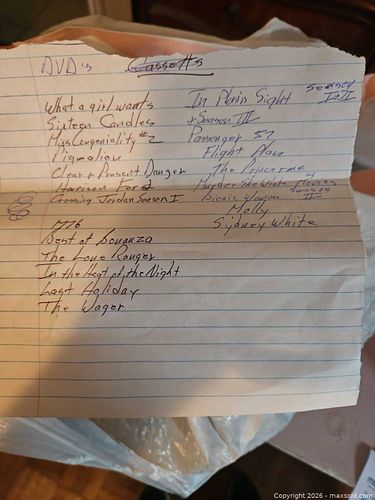 DVD's
Cassetts
What a girl wants
Sixteen Candles
Miss Congeniality #2
Pigmalion
Clear & Present Danger
Harrison Ford
Crossing Jordan Season I
1776
Best of Bonanza
The Lone Ranger
In the Heat of the Night
Last Holiday
The Wager
In Plain Sight Season I & II
& Season III
Passenger 57
Flight Plan
The Prince & me
Murder She Wrote 4 Movies
Bionic Woman Season II
Molly
Sydney White
Copyright 2026 - maxsold.com